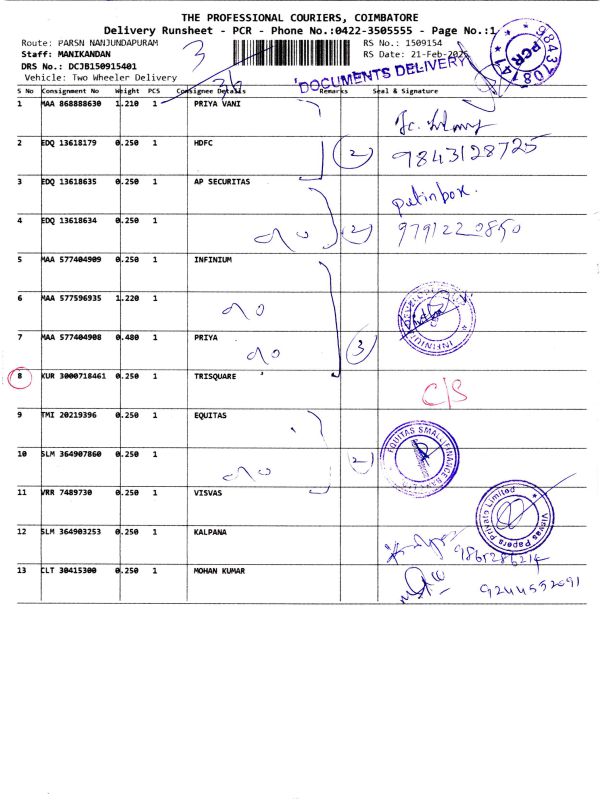 THE PROFESSIONAL COURIERS, COIMBATORE
Delivery Runsheet - PCR - Phone No.:0422-3505555 - Page No.:1
Route: PARSN NANJUNDAPURAM
RS No.: 1509154
Staff: MANIKANDAN
RS Date: 21-Feb-2025
DRS No.: DCJB150915401
Vehicle: Two Wheeler Delivery
DOCUMENTS DELIVERY
PCR
3
36
S No Consignment No Weight PCS Consignee Details Remarks Seal & Signature
1 MAA 868888630 1.210 1 PRIYA VANI
2 EDQ 13618179 0.250 1 HDFC 2 9843128725
3 EDQ 13618635 0.250 1 AP SECURITAS putinbox.
4 EDQ 13618634 0.250 1 2 9791220850
5 MAA 577404909 0.250 1 INFINIUM
6 MAA 577596935 1.220 1
7 MAA 577404908 0.480 1 PRIYA 3
8 KUR 3000718461 0.250 1 TRISQUARE C/S
9 TMI 20219396 0.250 1 EQUITAS
EQUITAS SMALL FINANCE BANK
10 SLM 364907860 0.250 1 2
11 VRR 7489730 0.250 1 VISVAS
Visvas Papers Private Limited
12 SLM 364903253 0.250 1 KALPANA 9865286214
13 CLT 30415300 0.250 1 MOHAN KUMAR 9244552691